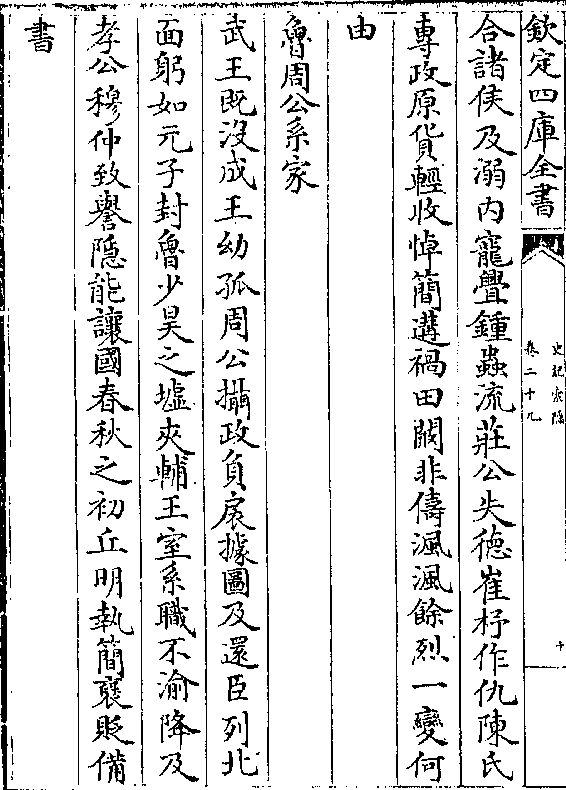 欽定四庫全書
史記索隱
卷二十九
十
合諸侯及溺内寵釁鍾蟲流莊公失德崔杼作仇陳氏
專政原貨輕收悼簡遘禍田闞非儔渢渢餘烈一變何
由
魯周公系家
武王既沒成王幼孤周公攝政負扆據圖及還臣列北
面躬如元子封魯少昊之墟夾輔王室系職不渝降及
孝公穆仲致譽隱能讓國春秋之初丘明執簡襃貶備
書